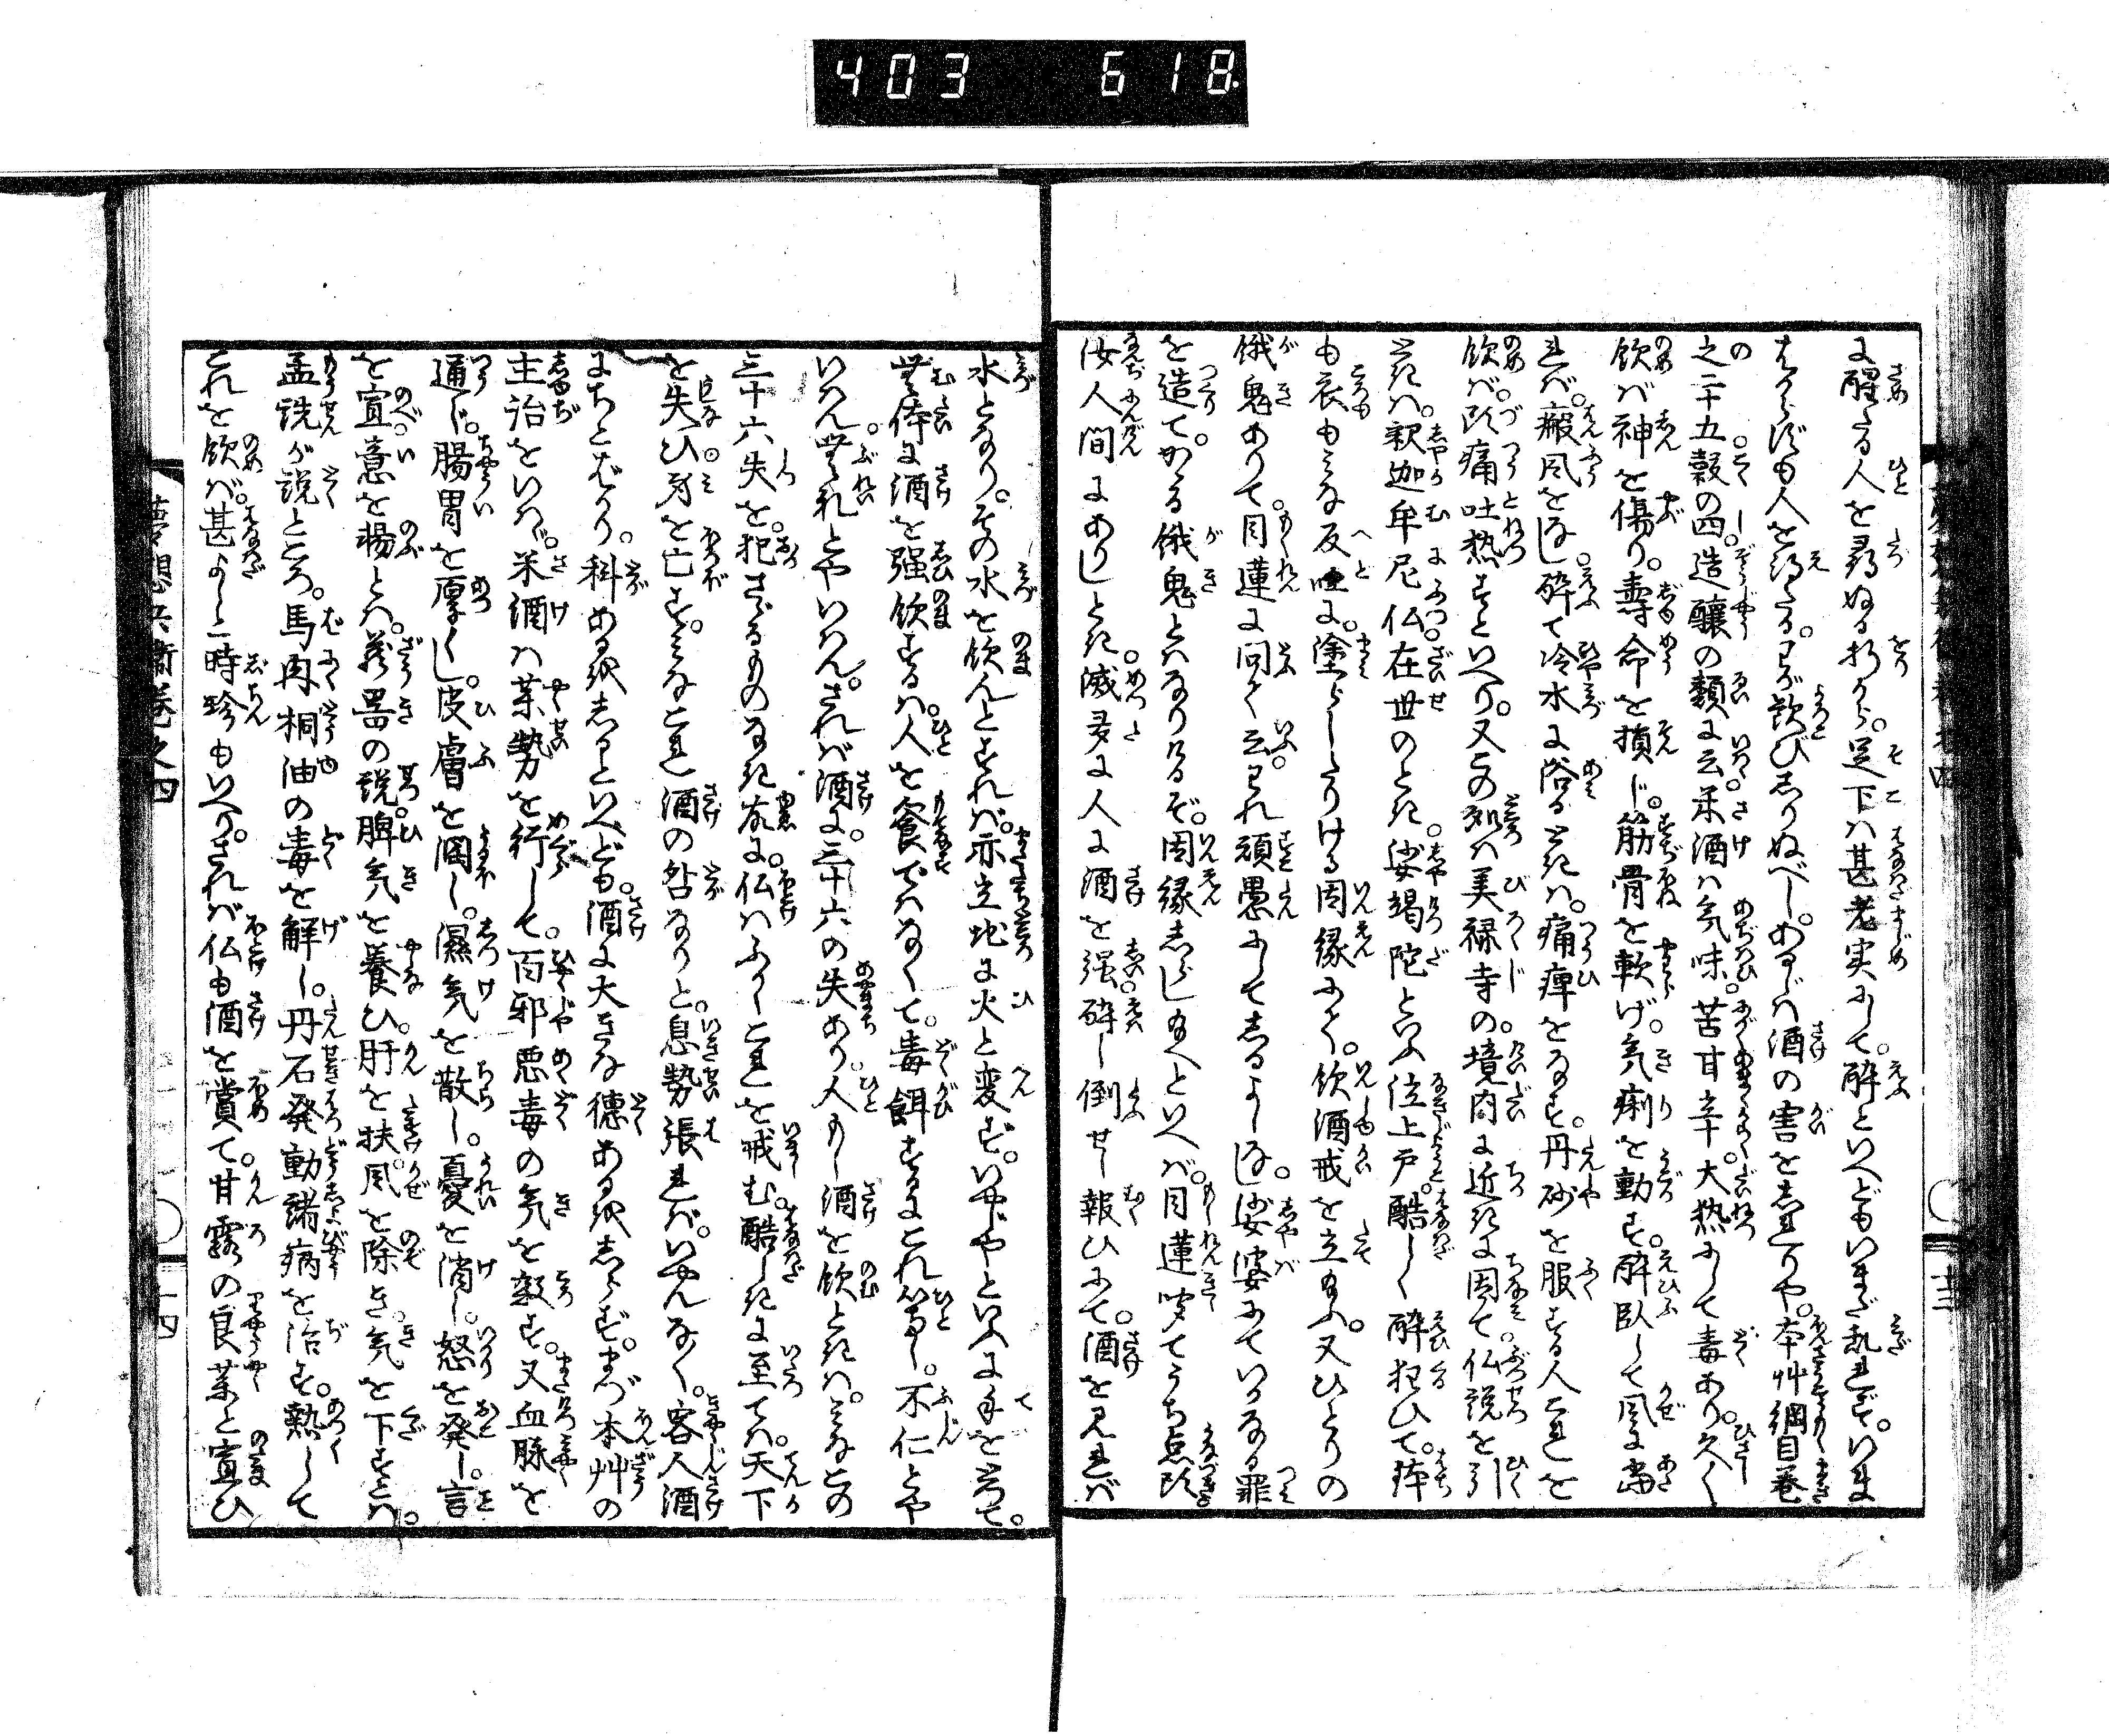 403 618
に醒たる人を尋ぬる折から。足下は甚老実にて。酔といへどもいまだ乱れず。いま
はからずも人を得たる。わが歓びしりぬべし。あるじは酒の害をしれりや。本艸綱目巻
之二十五穀の四造醸の類に云米酒は気味。苦甘辛。大熱にて毒あり。久しく
飲ば神を傷り。寿命を損じ。筋骨を軟げ。気痢を動す。酔臥して風に当
れば。癜風をなし。酔て冷水に浴るときは。痛痺をなす。丹砂を服する人これを
飲ば。頭痛吐熱すといへり。又この処は美禄寺の境内に近きに因て仏説を引
ときは。釈迦牟尼仏在世のとき。娑竭陀といふ泣上戸。酷しく酔犯ひて。鉢
も衣もみな反吐に。塗らしたりける因縁にて。飲酒戒を立給ふ。又ひとりの
餓鬼ありて目蓮に問て云。われ頑愚にてしるよしなし。娑婆にていかなる罪
を造て。かゝる餓鬼とはなりけるぞ。因縁しらし給へといへば。目蓮聞てうち点頭
汝人間にありしとき。滅多に人に酒を強。酔し倒せし報ひにて。酒を見れば
水となり。その水を飲んとすれば。亦立地に火と変ず。いやじやといふに手をとつて。
無体に酒を強飲するは。人を養ではなくて。毒餌するにこれ等し。不仁とや
いはん無礼とやいはん。されば酒に。三十六の失あり。人もし酒を飲ときは。みなこの
三十六失を。犯さゞるものなき故に。仏はふかくこれを戒む。酷しきに至ては。天下
を失ひ。身を亡す。みなこれ酒の咎なりと。息勢張れば。いやんなく。客人酒
にちとばかり。科ある事をしるといへども。酒に大きな徳ある事をしらず。まづ本艸の
主治をいはゞ。米酒は薬勢を行して。百邪悪毒の気を殺す。又血脉を
通じ。腸胃を厚くし。皮膚を潤し。湿気を散し。憂を消し。怒を発し。言
を宣。意を暢とは。蔵器の説。脾気を養ひ。肝を扶。風を除き。気を下すとは。
孟詵が説ところ。馬肉桐油の毒を解し。丹石発動諸病を治す。熱して
これを飲ば。甚よしと時珍もいへり。されば仏も酒を賞て。甘露の良薬と宣ひ
夢想兵衛巻之四
十四